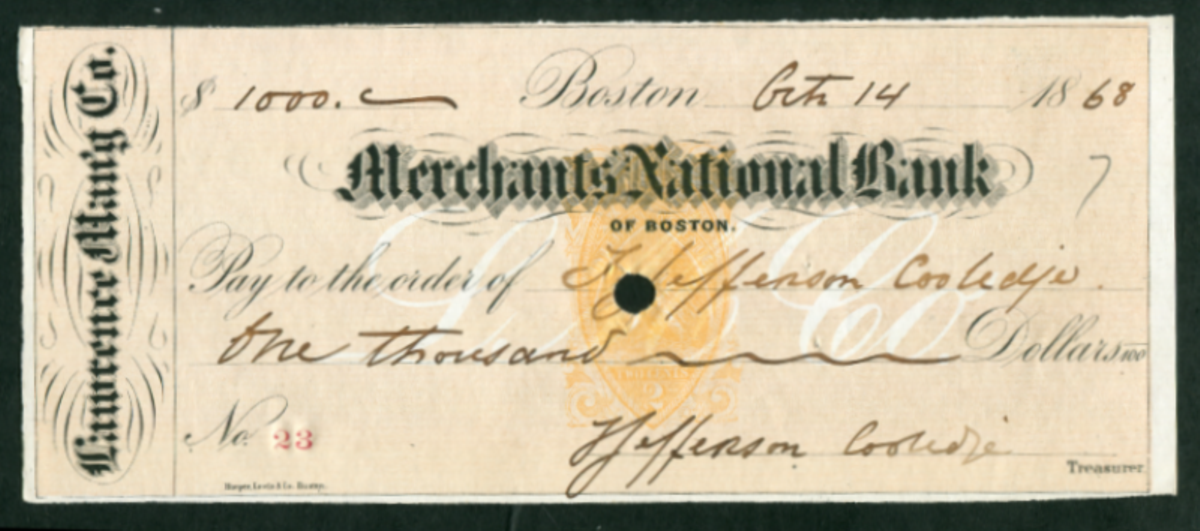 Lawrence Man'g Co.
$ 1000. Boston Octr 14 1868
Merchants National Bank
OF BOSTON.
7
Pay to the order of T Jefferson Coolidge.
One thousand Dollars 100
No. 23
T Jefferson Coolidge
Treasurer